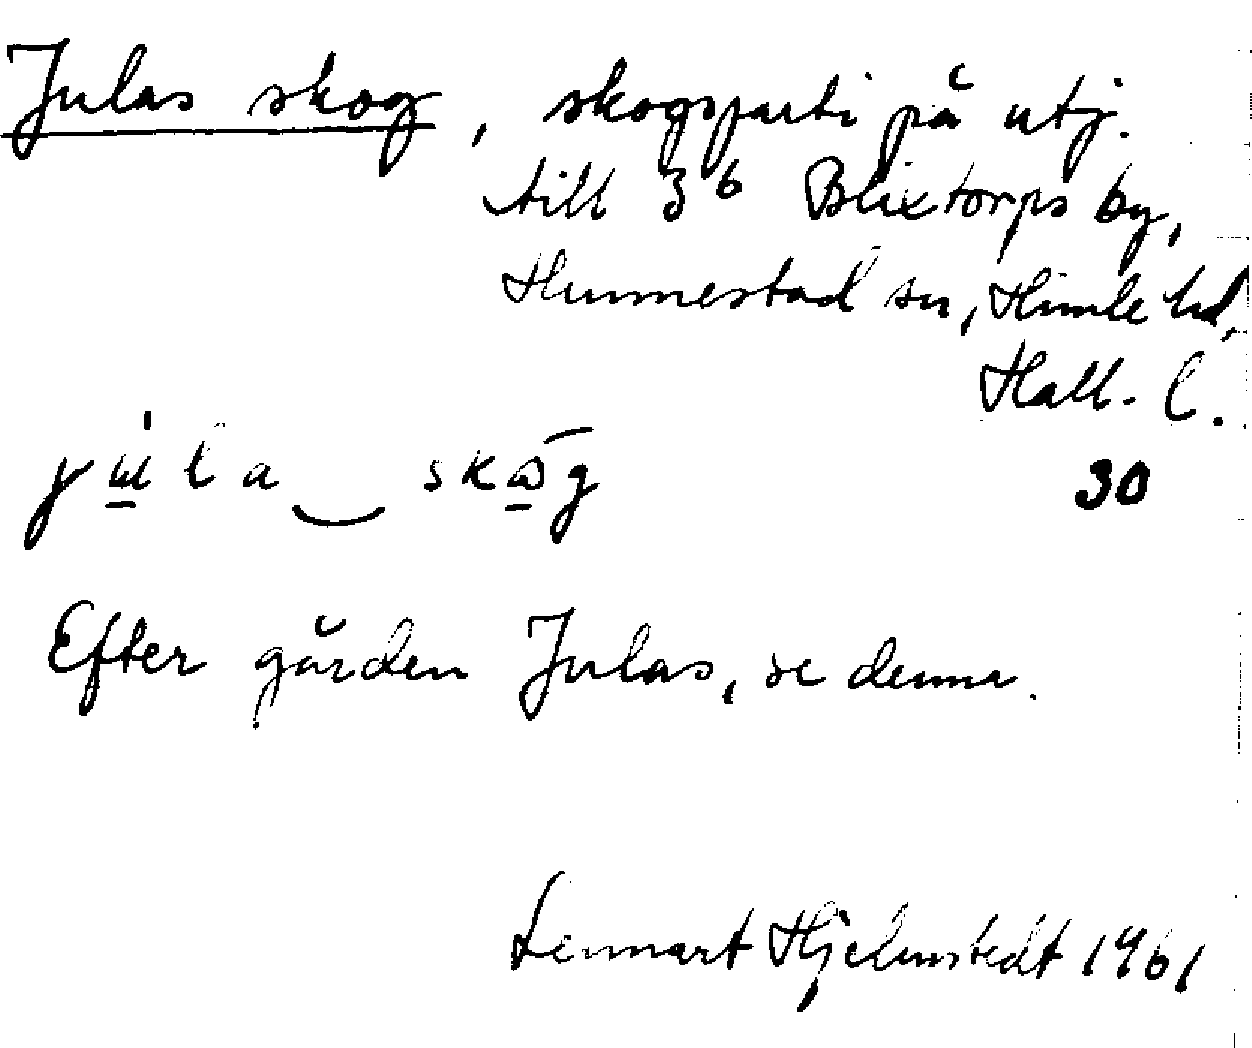 Julas skog, skogsparti på utj.
till 3⁶ Blixtorps by,
Hunnestad sn, Himle hd,
Hall. l.
30
Efter gården Julas, se denna.
Lennart Hjelmstedt 1961